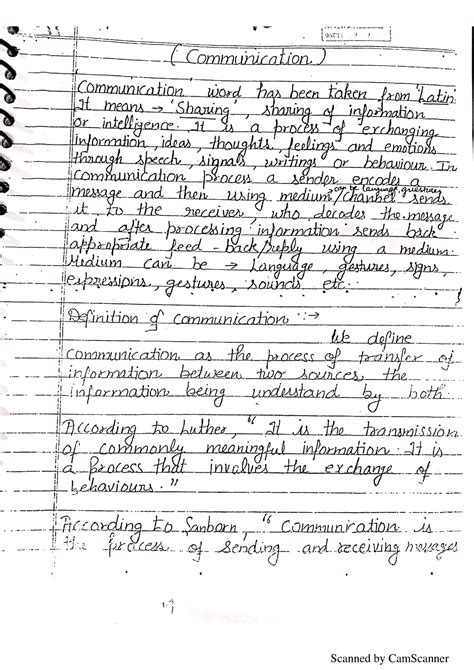 DATE: / /
(Communication)
'Communication' word has been taken from 'Latin'.
It means → 'Sharing', sharing of information
or intelligence. It is a process of exchanging
information, ideas, thoughts, feelings and emotions
through speech, signals, writings or behaviour. In
communication process a sender encodes a
message and then using medium/channel sends
it to the receivers, who decodes the message
and after processing information sends back
appropriate feed-back/reply using a medium.
Medium can be → Language, gestures, signs,
expressions, gestures, sounds etc.
Definition of communication :→
We define
communication as the process of transfer of
information between two sources, the
information being understand by both.
According to Luther, "It is the transmission
of commonly meaningful information. It is
a process that involves the exchange of
behaviours."
According to Sanborn, "Communication is
the process of sending and receiving messages
Scanned by CamScanner